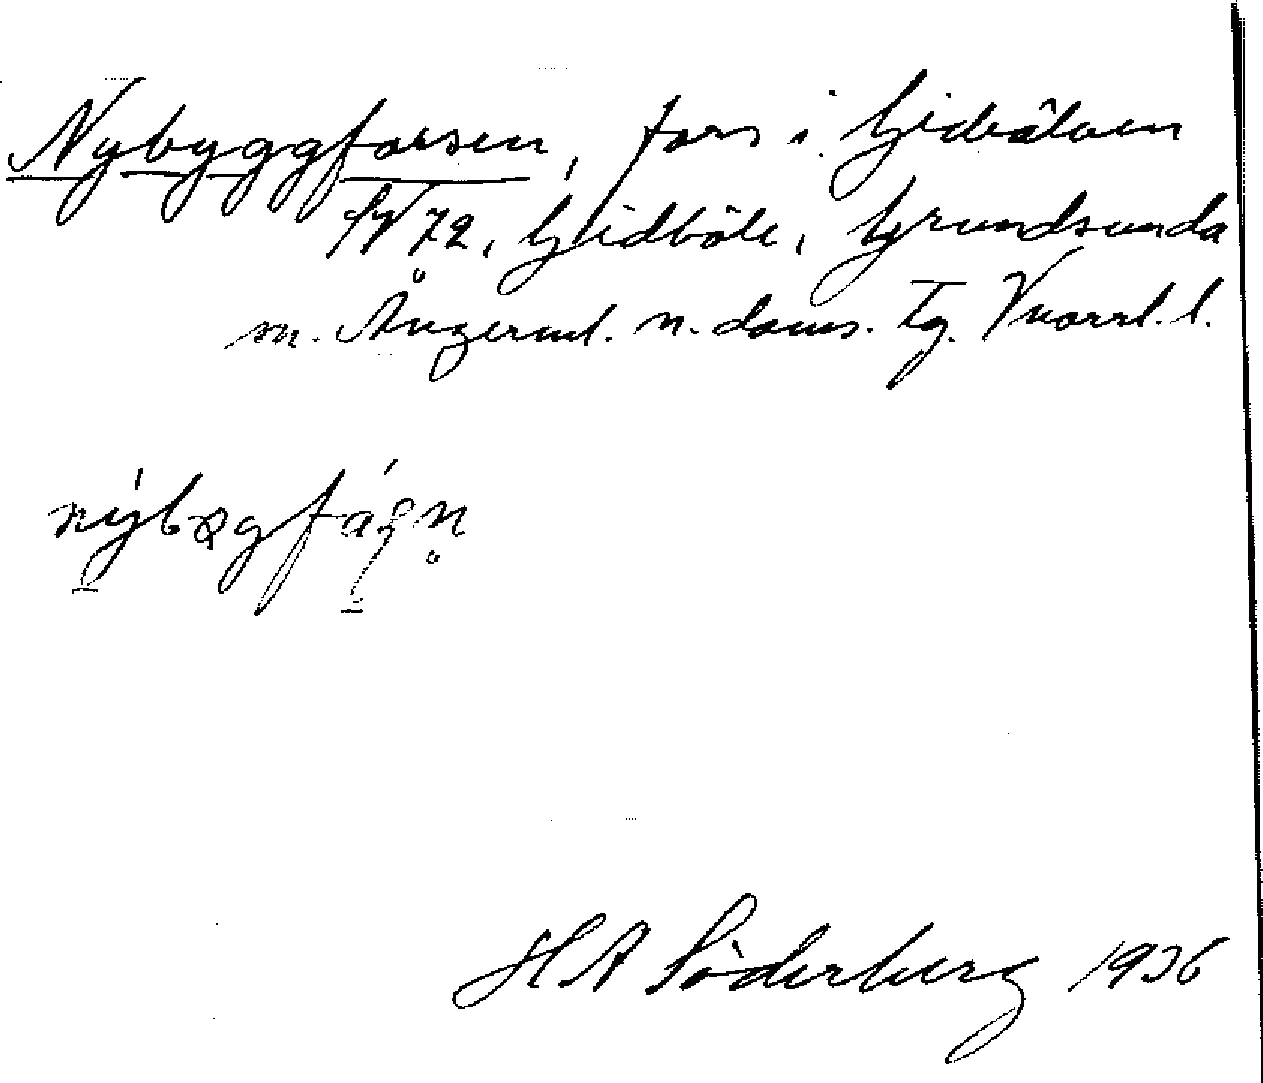 Nybyggforsen, fors i Gideälven
72, Gideböle, Grundsunda
sn. Ångerml. n. doms. Tg. Vnorrl. l.
H A Söderberg 1936